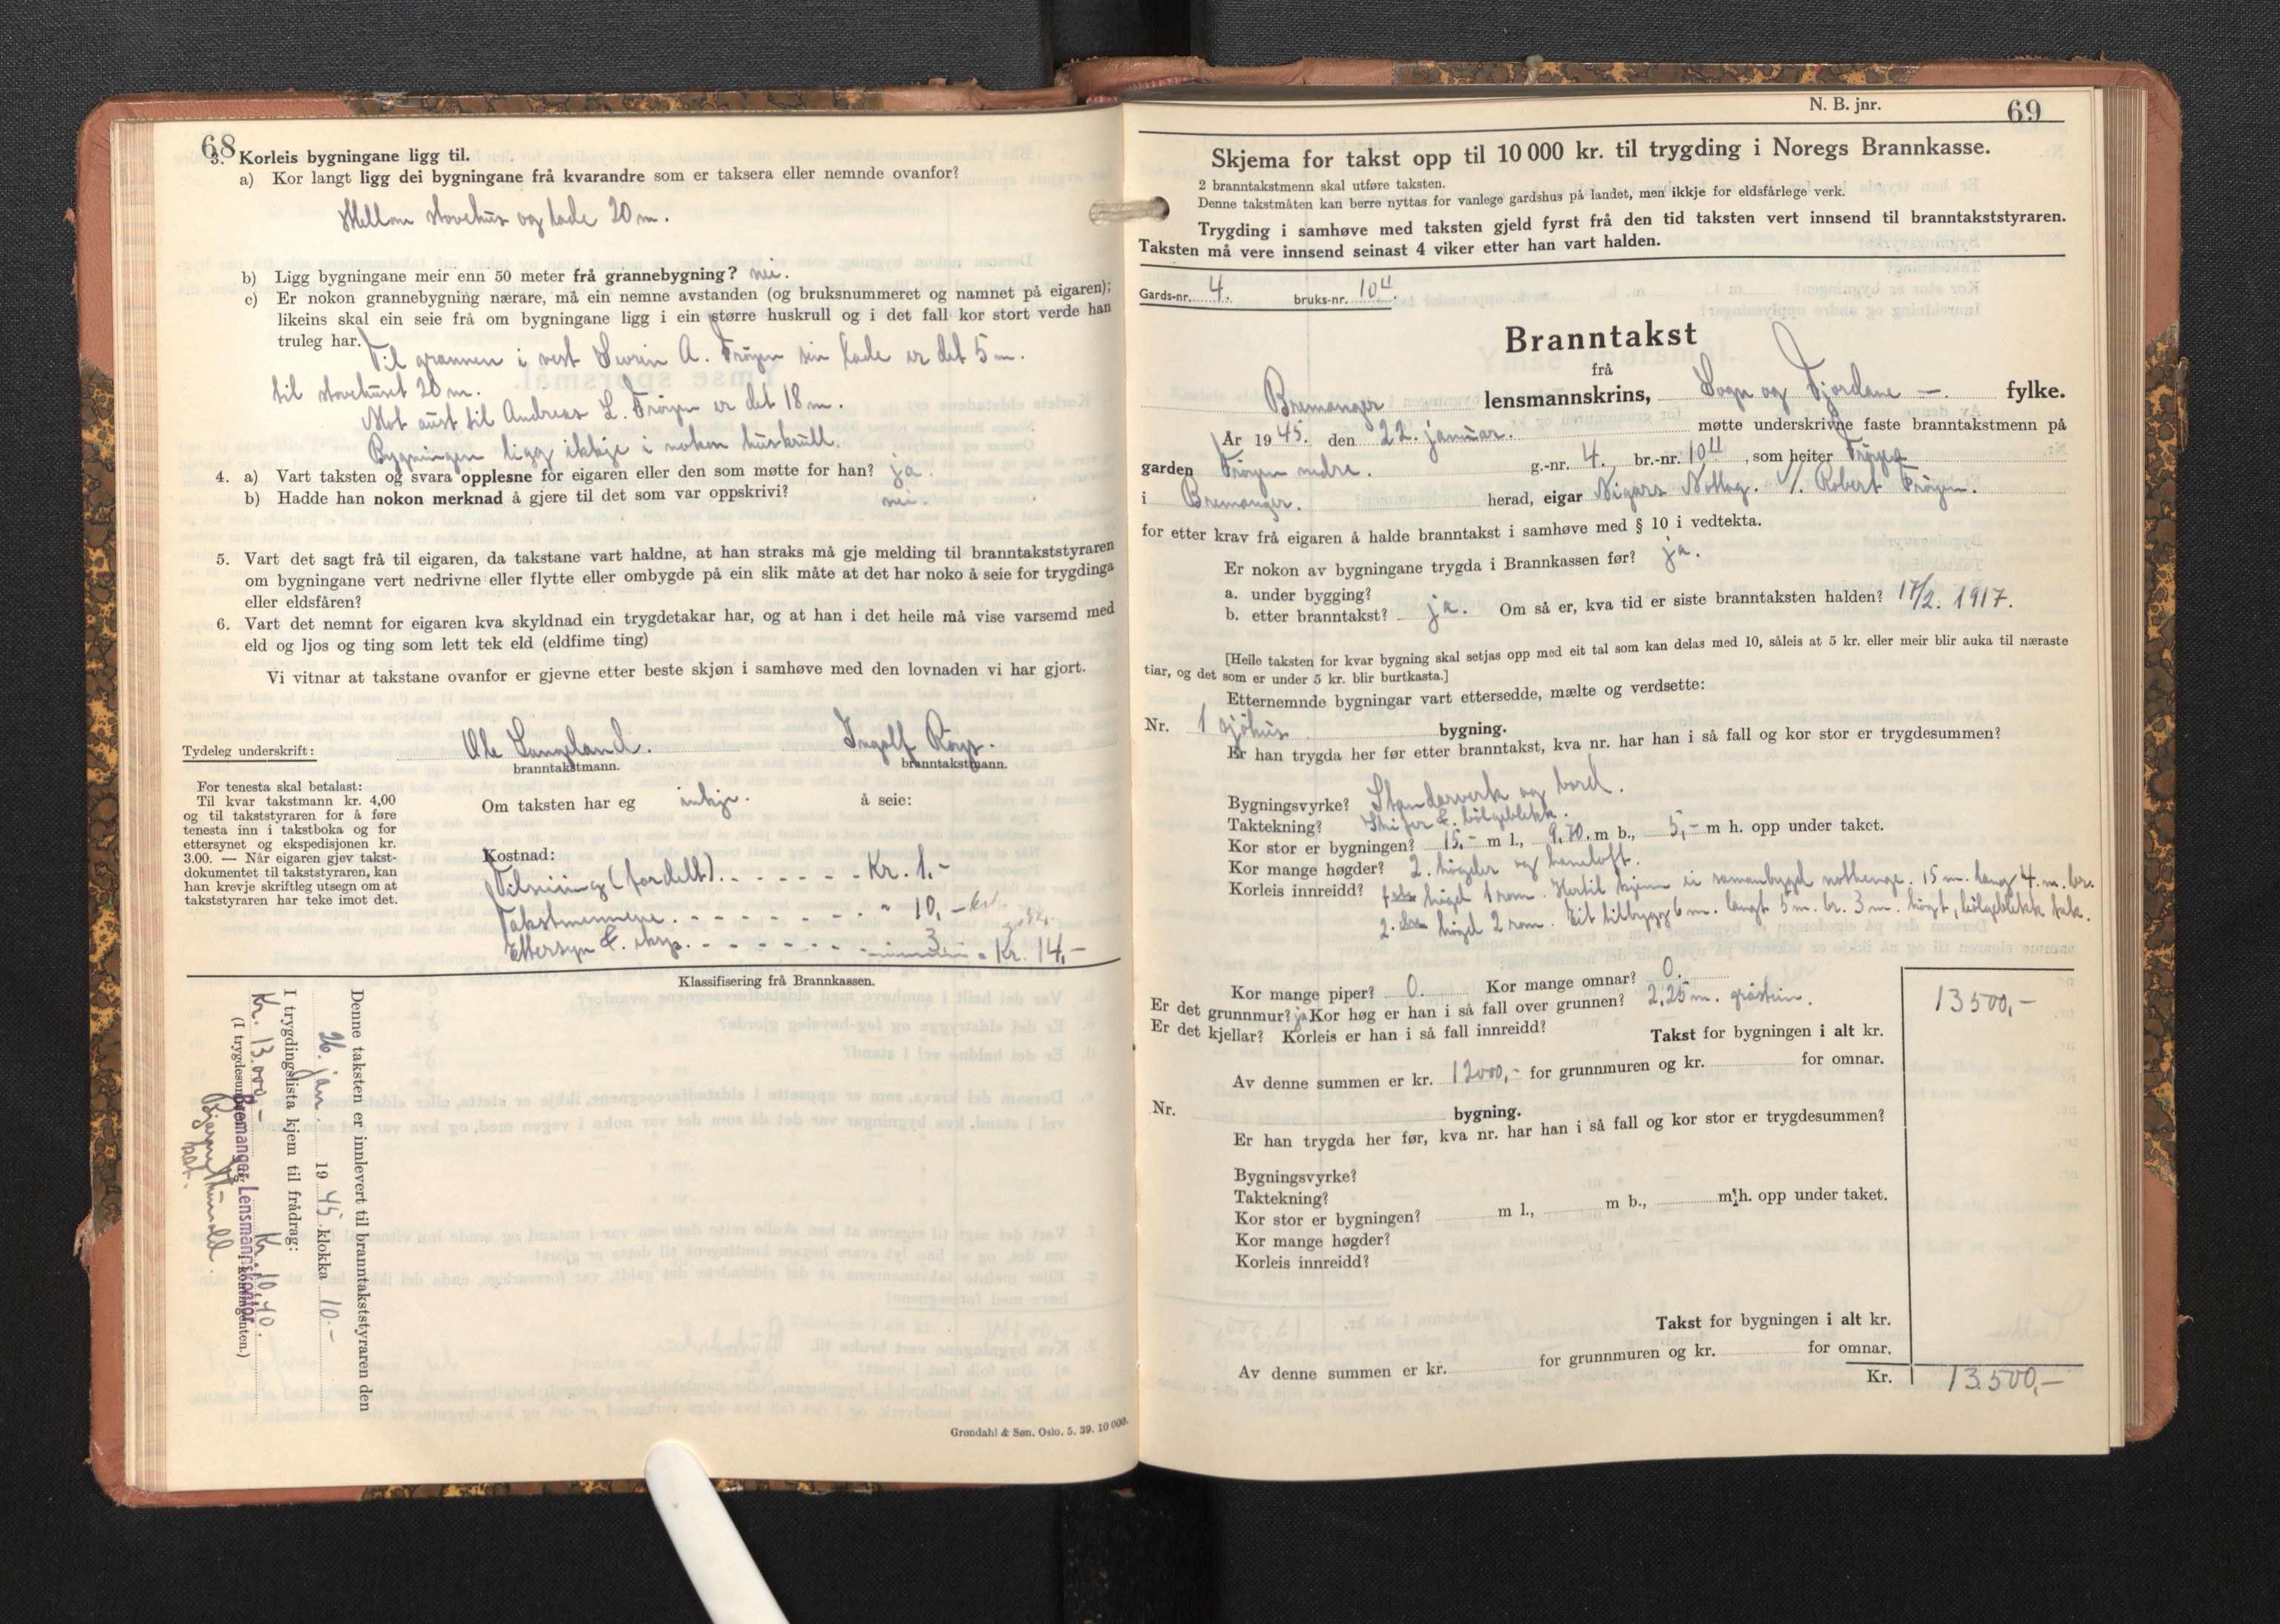 68
3. Korleis bygningane ligg til.
a) Kor langt ligg dei bygningane frå kvarandre som er taksera eller nemnde ovanfor?
Mellom stovehus og lade 20 m.
b) Ligg bygningane meir enn 50 meter frå grannebygning? nei.
c) Er nokon grannebygning nærare, må ein nemne avstanden (og bruksnummeret og namnet på eigaren);
likeins skal ein seie frå om bygningane ligg i ein større huskrull og i det fall kor stort verde han
truleg har.
Til grannen i vest Severin A. Frøyen sin lade er det 5 m.
til stovehuset 20 m.
Mot aust til Andreas L. Frøyen er det 18 m.
Bygningen ligg ikkje i nokon huskrull.
4. a) Vart taksten og svara opplesne for eigaren eller den som møtte for han? ja.
b) Hadde han nokon merknad å gjere til det som var oppskrivi? nei.
5. Vart det sagt frå til eigaren, da takstane vart haldne, at han straks må gje melding til branntakststyraren
om bygningane vert nedrivne eller flytte eller ombygde på ein slik måte at det har noko å seie for trygdinga
eller eldsfåren?
6. Vart det nemnt for eigaren kva skyldnad ein trygdetakar har, og at han i det heile må vise varsemd med
eld og ljos og ting som lett tek eld (eldfime ting)
Vi vitnar at takstane ovanfor er gjevne etter beste skjøn i samhøve med den lovnaden vi har gjort.
Tydeleg underskrift: Ole Langeland. Ingolf Røys.
branntakstmann. branntakstmann.
For tenesta skal betalast:
Til kvar takstmann kr. 4,00
og til takststyraren for å føre
tenesta inn i takstboka og for
ettersynet og ekspedisjonen kr.
3.00. — Når eigaren gjev takst-
dokumentet til takststyraren, kan
han krevje skriftleg utsegn om at
takststyraren har teke imot det.
Om taksten har eg inkje. å seie:
Kostnad:
Tilseiing (fordelt) . . . . . . Kr. 1,-
Takstmennene . . . . . . . " 10,-
Ettersyn & eksp. . . . . . . . 3 . Kr. 14,-
Klassifisering frå Brannkassen.
Denne taksten er innlevert til branntakststyraren den
26. jan 1945 klokka 10.-
I trygdingslista kjem til frådrag:
Kr. 13.000,- Kr. 10,40.
Bremanger Lensmannskontor
Grøndahl & Søn. Oslo. 5. 39. 10 000.
N. B. jnr.
69
Skjema for takst opp til 10 000 kr. til trygding i Noregs Brannkasse.
2 branntakstmenn skal utføre taksten.
Denne takstmåten kan berre nyttas for vanlege gardshus på landet, men ikkje for eldsfårlege verk.
Trygding i samhøve med taksten gjeld fyrst frå den tid taksten vert innsend til branntakststyraren.
Taksten må vere innsend seinast 4 viker etter han vart halden.
Gards-nr. 4. bruks-nr. 10 11.
Branntakst
frå
Bremanger lensmannskrins, Sogn og Fjordane —. fylke.
År 1945. den 22. januar. møtte underskrivne faste branntakstmenn på
garden Frøyen nedre. g.-nr. 4., br.-nr. 10 11, som heiter Frøyen
i Bremanger. herad, eigar Nigars Notlag. v/. Robert Frøyen.
for etter krav frå eigaren å halde branntakst i samhøve med § 10 i vedtekta.
Er nokon av bygningane trygda i Brannkassen før? ja.
a. under bygging?
b. etter branntakst? ja. Om så er, kva tid er siste branntaksten halden? 17/2. 1917.
[Heile taksten for kvar bygning skal setjas opp med eit tal som kan delas med 10, såleis at 5 kr. eller meir blir auka til næraste
tiar, og det som er under 5 kr. blir burtkasta.]
Etternemnde bygningar vart ettersedde, mælte og verdsette:
Nr. 1 sjøhus bygning.
Er han trygda her før etter branntakst, kva nr. har han i så fall og kor stor er trygdesummen?
Bygningsvyrke? Standarverk og bord.
Taktekning? Skifer & bølgeblekk.
Kor stor er bygningen? 15,- m l., 9,70. m b., 5,- m h. opp under taket.
Kor mange høgder? 2. høgder og hameloft.
Korleis innreidd? høgd 1 rom. Hertil kjem ei samanbygd nothenge. 15 m. lang 4. m. br.
2. høgd 2 rom. Eit tilbygg 6 m. langt 5 m. br. 3 m. høgt, bølgeblekk tak.
Kor mange piper? 0. Kor mange omnar? 0.
Er det grunnmur? ja Kor høg er han i så fall over grunnen? 2,25 m. gråstein.
Er det kjellar? Korleis er han i så fall innreidd?
Takst for bygningen i alt kr. 13500,-
Av denne summen er kr. 12000,- for grunnmuren og kr. for omnar.
Nr. bygning.
Er han trygda her før, kva nr. har han i så fall og kor stor er trygdesummen?
Bygningsvyrke?
Taktekning?
Kor stor er bygningen? m l., m b., m h. opp under taket.
Kor mange høgder?
Korleis innreidd?
Takst for bygningen i alt kr.
Av denne summen er kr. for grunnmuren og kr. for omnar.
Kr. 13.500,-